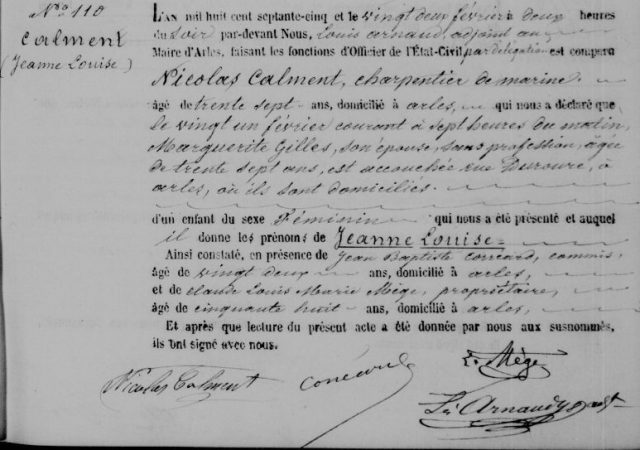 No 110
Calment
(Jeanne Louise)
L'AN mil huit cent septante-cinq et le vingt deux février à deux heures
du soir par-devant Nous, Louis Arnaud, adjoint au
Maire d'Arles, faisant les fonctions d'Officier de l'État-Civil par délégation est comparu
Nicolas Calment, charpentier de marine
âgé de trente sept ans, domicilié à arles, qui nous a déclaré que
le vingt un février courant à sept heures du matin,
Marguerite Gilles, son épouse, sans profession, âgée
de trente sept ans, est accouchée rue Duroure, à
arles, où ils sont domiciliés.
d'un enfant du sexe Féminin qui nous a été présenté et auquel
il donne les prénoms de Jeanne Louise
Ainsi constaté, en présence de Jean Baptiste Corréard, commis,
âgé de vingt deux ans, domicilié à arles,
et de Claude Louis Marie Mège, propriétaire,
âgé de cinquante huit ans, domicilié à arles,
Et après que lecture du présent acte a été donnée par nous aux susnommés,
ils ont signé avec nous.
Nicolas Calment
L. Mège
Ls Arnaud